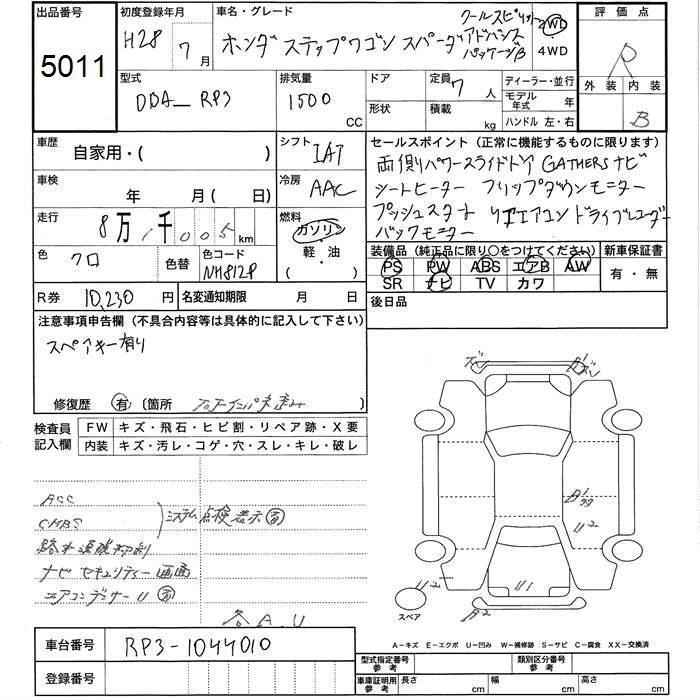 出品番号 初度登録年月 車名・グレード 評価点
5011 H28 7月 ホンダ ステップワゴン スパーダ クールスピリット アドバンス パッケージβ 2WD 4WD R
外装 内装
B
型式 排気量 ドア 定員 ディーラー・並行
DBA_ RP3 1500 CC 7人 モデル年式 年
形状 積載 kg ハンドル 左・右
車歴 シフト セールスポイント(正常に機能するものに限ります)
自家用・( ) IAT 両側パワースライドドア GATHERSナビ
車検 年 月( 日) 冷房 AAC シートヒーター フリップダウンモニター
走行 8万1千005km 燃料 ガソリン プッシュスタート リアエアコン ドライブレコーダー
軽・油 バックモニター
色 クロ 色替 色コード NH812P ( )
装備品(純正品に限り○をつけてください) 新車保証書
PS PW ABS エアB AW 有・無
SR ナビ TV カワ
R券 10,230円 名変通知期限 月 日 後日品
注意事項申告欄(不具合内容等は具体的に記入して下さい)
スペアキー有り
修復歴 有 〔箇所
検査員記入欄 FW キズ・飛石・ヒビ割・リペア跡・X要
内装 キズ・汚レ・コゲ・穴・スレ・キレ・破レ
ACC
CMBS システム点検表示有
路外逸脱抑制
ナビ セキュリティー画面
エアコンコンデンサーU有
各A.U
U2
U2
U1
A2
スペア
A-キズ E-エクボ U-凹み W-補修跡 S-サビ C-腐食 XX-交換済
車台番号 RP3-1044010
登録番号
型式指定番号参考 類別区分番号参考
車庫証明用参考 長さ cm 幅 cm 高さ cm